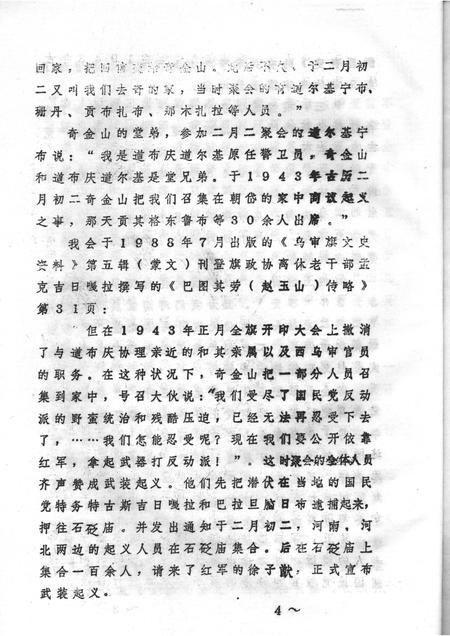 回家，把回信交给奇金山。此后不久，于二月初
二又叫我们去奇的家，当时聚会的有道尔基宁布、
珊丹、贡布扎布、那木扎拉等人员。”
奇金山的堂弟，参加二月二聚会的道尔基宁
布说：“我是道布庆道尔基原任警卫员，奇金山
和道布庆道尔基是堂兄弟。于1943年古历二
月初二奇金山把我们召集在朝岱的家中商议起义
之事，那天贡其格东鲁布等30余人出席。”
我会于1988年7月出版的《乌审旗文史
资料》第五辑（蒙文）刊登旗政协离休老干部孟
克吉日嘎拉撰写的《巴图其劳（赵玉山）传略》
第31页：
但在1943年正月全旗开印大会上撤消
了与道布庆协理亲近的和其亲属以及西乌审官员
的职务。在这种状况下，奇金山把一部分人员召
集到家中，号召大伙说：“我们受尽了国民党反动
派的野蛮统治和残酷压迫，已经无法再忍受下去
了，……我们怎能忍受呢？现在我们要公开依靠
红军，拿起武器打反动派！”。这时聚会的全体人员
齐声赞成武装起义。他们先把潜伏在当地的国民
党特务特古斯吉日嘎拉和巴拉旦脑日布逮捕起来，
押往石砭庙。并发出通知于二月初二，河南、河
北两边的起义人员在石砭庙集合。后在石砭庙上
集合一百余人，请来了红军的徐子猷，正式宣布
武装起义。
4～